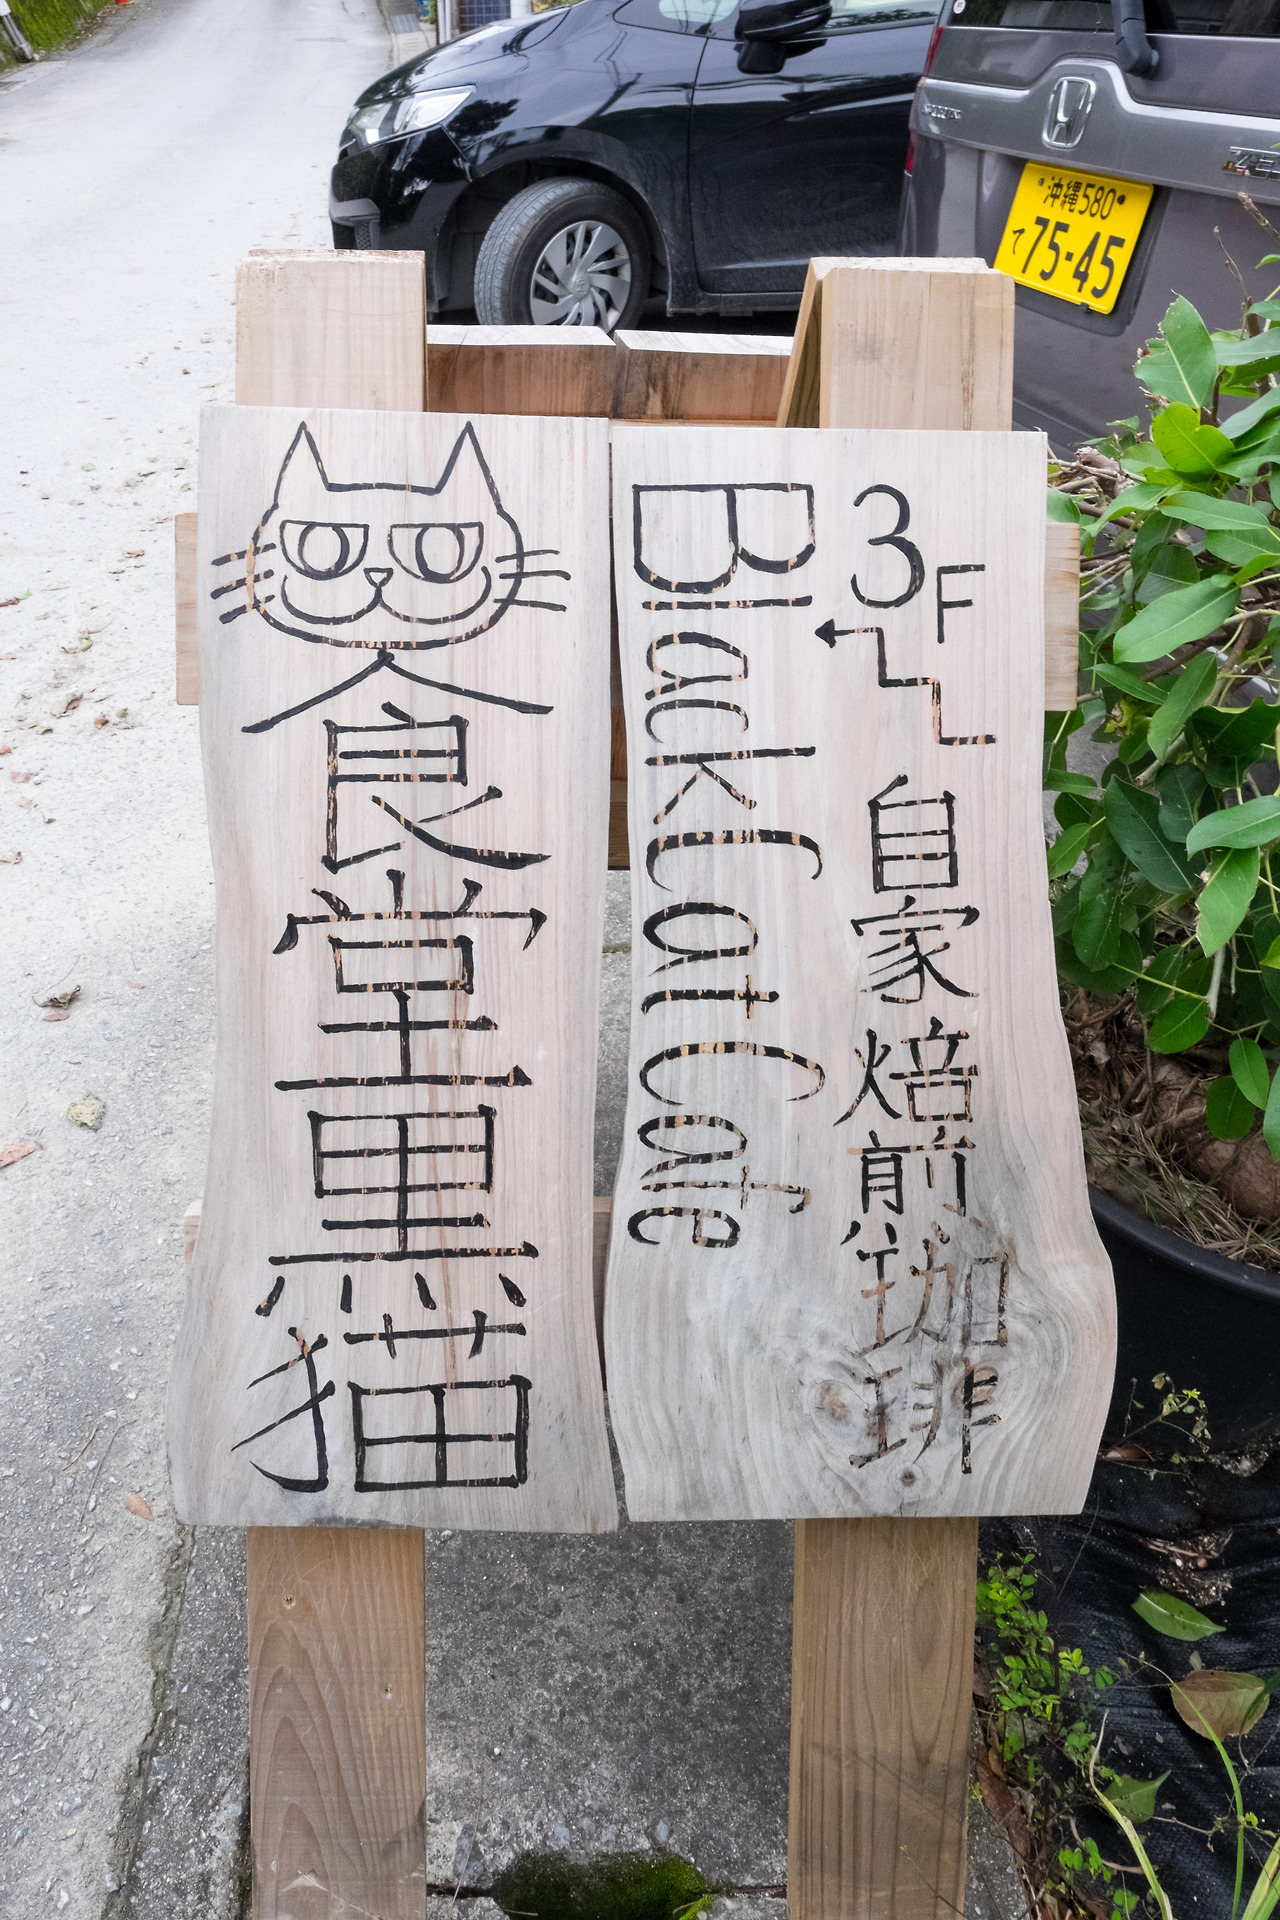 3F
自家焙煎珈琲
Black Cat Cafe
食堂黒猫
沖縄580
て75-45